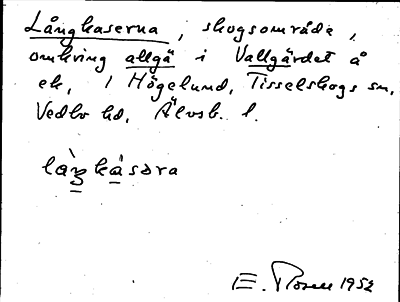 Långkaserna, skogsområde,
omkring allgä i Vallgärdet å
ek, 1 Högelund, Tisselskogs sn,
Vedbo hd, Älvsb. l.
E. Rosell 1952